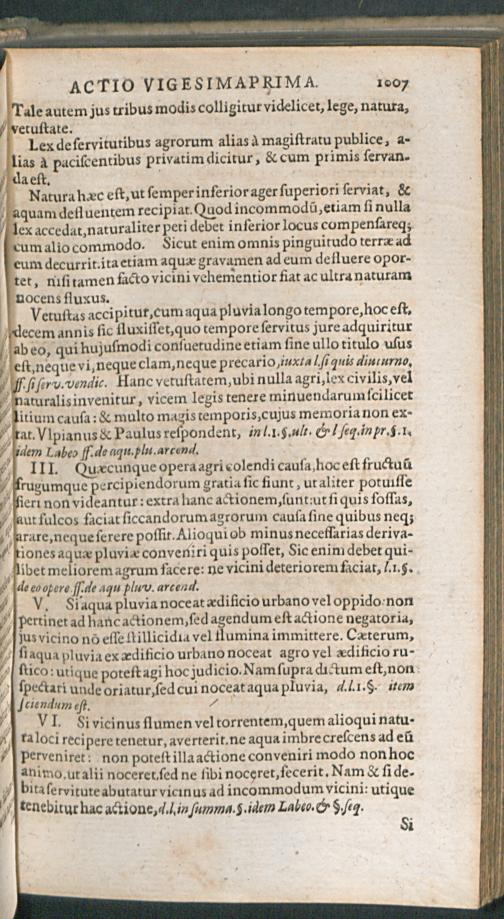 ACTIO VIGESIMAPRIMA. 1007
Tale autem jus tribus modis colligitur videlicet, lege, natura,
vetuſtate.
Lex de ſervitutibus agrorum alias à magiſtratu publice, a-
lias à paciſcentibus privatim dicitur, & cum primis ſervan-
da eſt.
Natura hæc eſt, ut ſemper inferior ager ſuperiori ſerviat, &
aquam defluentem recipiat. Quod incommodū, etiam ſi nulla
lex accedat, naturaliter peti debet inferior locus compenſareq;
cum alio commodo. Sicut enim omnis pinguitudo terræ ad
eum decurrit. ita etiam aquæ gravamen ad eum defluere opor-
tet, niſi tamen facto vicini vehementior fiat ac ultra naturam
nocens fluxus.
Vetuſtas accipitur, cum aqua pluvia longo tempore, hoc eſt,
decem annis ſic fluxiſſet, quo tempore ſervitus jure adquiritur
ab eo, qui hujuſmodi conſuetudine etiam ſine ullo titulo uſus
eſt, neque vi, neque clam, neque precario, iuxta l. ſi quis diuturno,
ff. ſi ſerv. vendic. Hanc vetuſtatem, ubi nulla agri, lex civilis, vel
naturalis invenitur, vicem legis tenere minuendarum ſcilicet
litium cauſa: & multo magis temporis, cujus memoria non ex-
tat. Vlpianus & Paulus reſpondent, in l. 1. §. ult. & l ſeq. in pr. §. 1.
idem Labeo ff. de aqu. plu. arcend.
III. Quæcunque opera agri colendi cauſa, hoc eſt fructuū
frugumque percipiendorum gratia ſic fiunt, ut aliter potuiſſe
fieri non videantur: extra hanc actionem, ſunt: ut ſi quis foſſas,
aut ſulcos faciat ſiccandorum agrorum cauſa ſine quibus neq;
arare, neque ſerere poſſit. Alioqui ob minus neceſſarias deriva-
tiones aquæ pluviæ conveniri quis poſſet, Sic enim debet qui-
libet meliorem agrum facere: ne vicini deteriorem faciat, l. 1. §.
de eo opere ff. de aqu pluv. arcend.
V. Si aqua pluvia noceat ædificio urbano vel oppido: non
pertinet ad hanc actionem, ſed agendum eſt actione negatoria,
jus vicino nō eſſe ſtillicidia vel flumina immittere. Cæterum,
ſi aqua pluvia ex ædificio urbano noceat agro vel ædificio ru-
ſtico: utique poteſt agi hoc judicio. Nam ſupra dictum eſt, non
ſpectari unde oriatur, ſed cui noceat aqua pluvia, d. l. 1. §. item
ſciendum eſt.
VI. Si vicinus flumen vel torrentem, quem alioqui natu-
ra loci recipere tenetur, averterit. ne aqua imbre creſcens ad eū
perveniret: non poteſt illa actione conveniri modo non hoc
animo. ut alii noceret, ſed ne ſibi noceret, fecerit. Nam & ſi de-
bita ſervitute abutatur vicinus ad incommodum vicini: utique
tenebitur hac actione, d. l. in ſumma. §. idem Labeo. & §. ſeq.
Si